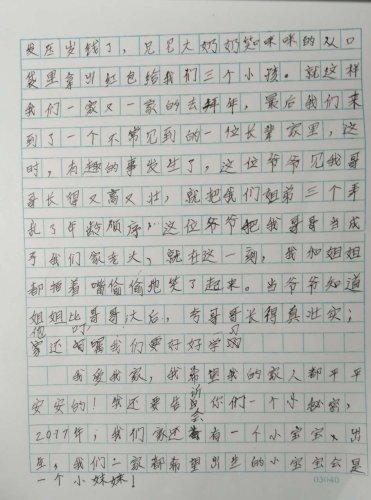 发压岁钱了，只见大奶奶笑咪咪的从口
袋里拿出红包给我们三个小孩。就这样
我们一家又一家的去拜年，最后我们来
到了一个不常见到的一位长辈家里，这
时，有趣的事发生了，这位爷爷见我哥
哥长得又高又壮，就把我们姐弟三个弄
乱了年龄顺序，这位爷爷把我哥哥当成
了我们家老大，就在这一刻，我和姐姐
都捂着嘴偷偷地笑了起来。当爷爷知道
姐姐比哥哥大后，夸哥哥长得真壮实；
他还叮嘱我们要好好学习
我爱我家，我希望我的家人都平平
安安的！我还要告诉你们一个小秘密，
2017年，我们家还会有一个小宝宝出
生，我们一家都希望出生的小宝宝会是
一个小妹妹！
03040